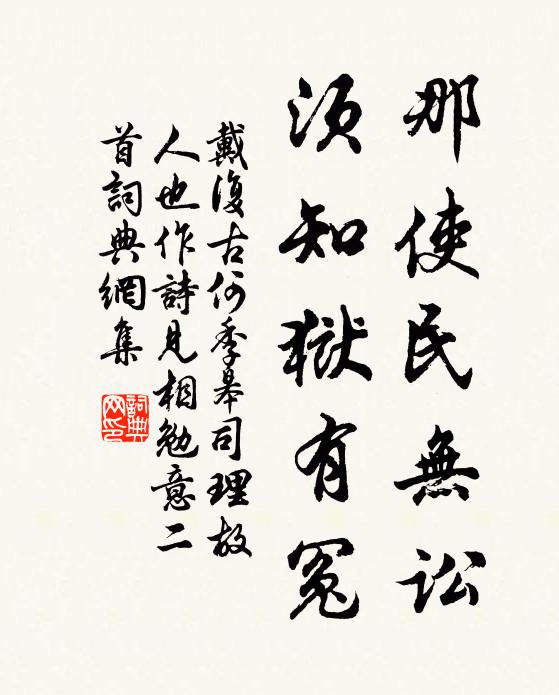 那使民無訟
須知獄有冤
戴復古何季皋司理故
人也作詩見相勉意二
首詞典網集
詞典網印